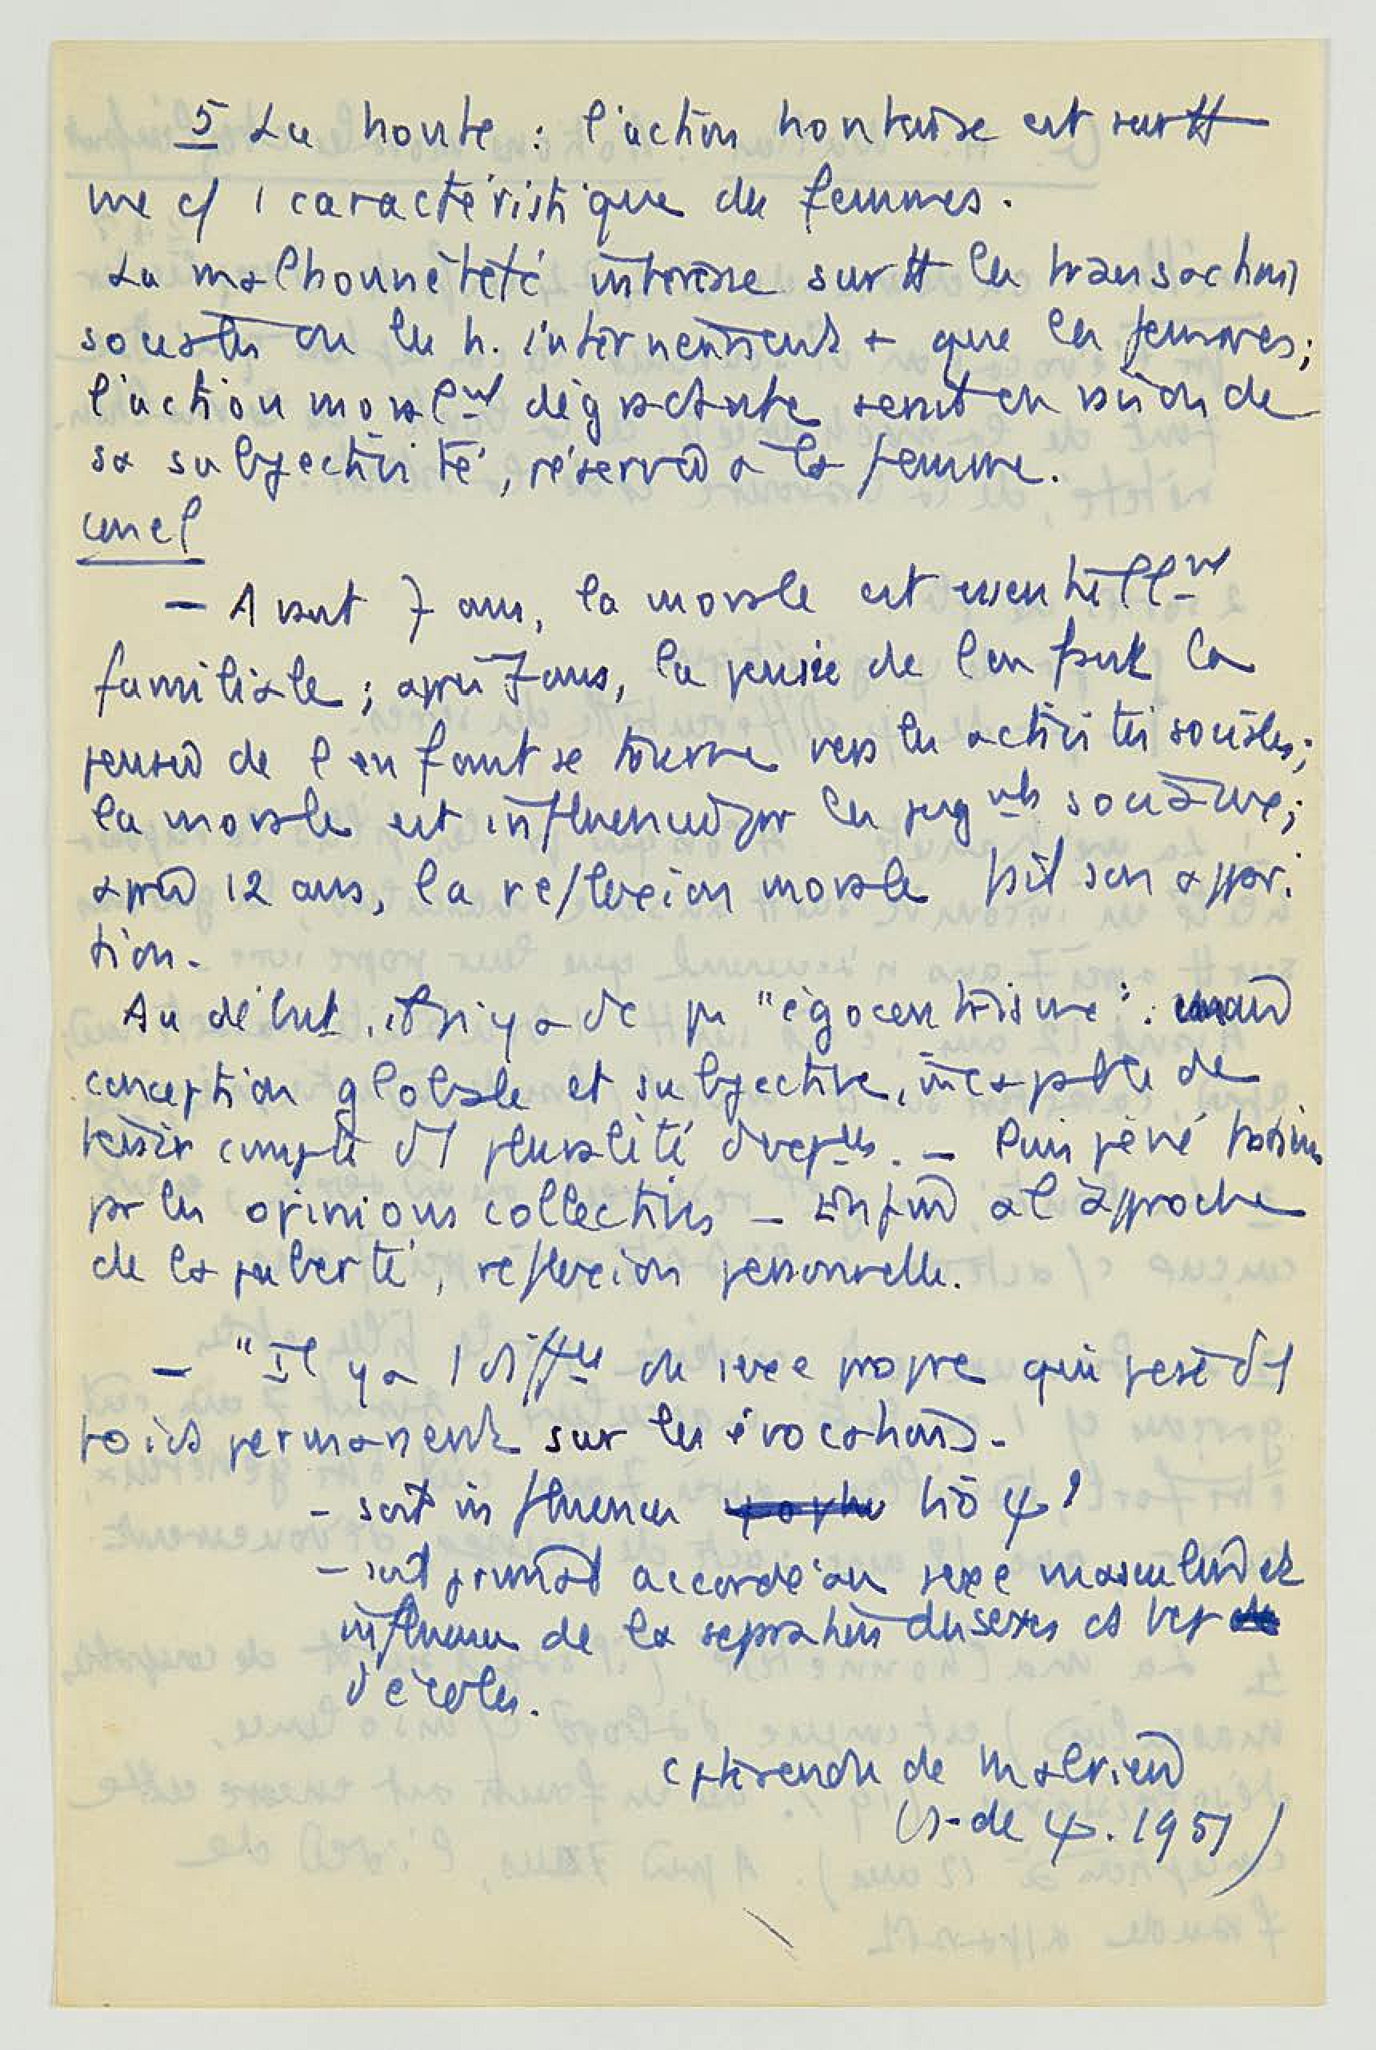 5 La honte : l'action honteuse est surtt
vue c/ 1 caractéristique des femmes.
La malhonnêteté intéresse surtt les transactions
sociales où les h. interviennent + que les femmes;
l'action moralnt dégradante serait en raison de
sa subjectivité, réservée à la femme.
Concl
— Avant 7 ans, la morale est essentiellnt
familiale ; après 7 ans, la pensée de l'enfant la
pensée de l'enfant se tourne vers les activités sociales;
la morale est influencée par les jugnts sociaux;
après 12 ans, la réflexion morale fait son appari
tion.
Au début, il n'y a de pr "égocentrisme":
conception globale et subjective, incapable de
tenir compte d'1 pluralité d'aspects. — Puis
par les opinions collectives — Enfin à l'approche
de la puberté, réflexion personnelle.
— "Il y a 1 diffce de sexe propre qui pèse d'1
poids permanent sur les évocations.
- soit influence bio ψ?
- soit primat accordé au sexe masculin et
influence de la séparation des sexes ds les
d'écoles.
Cpte rendu de Malrieu
(J. de ψ. 1951)